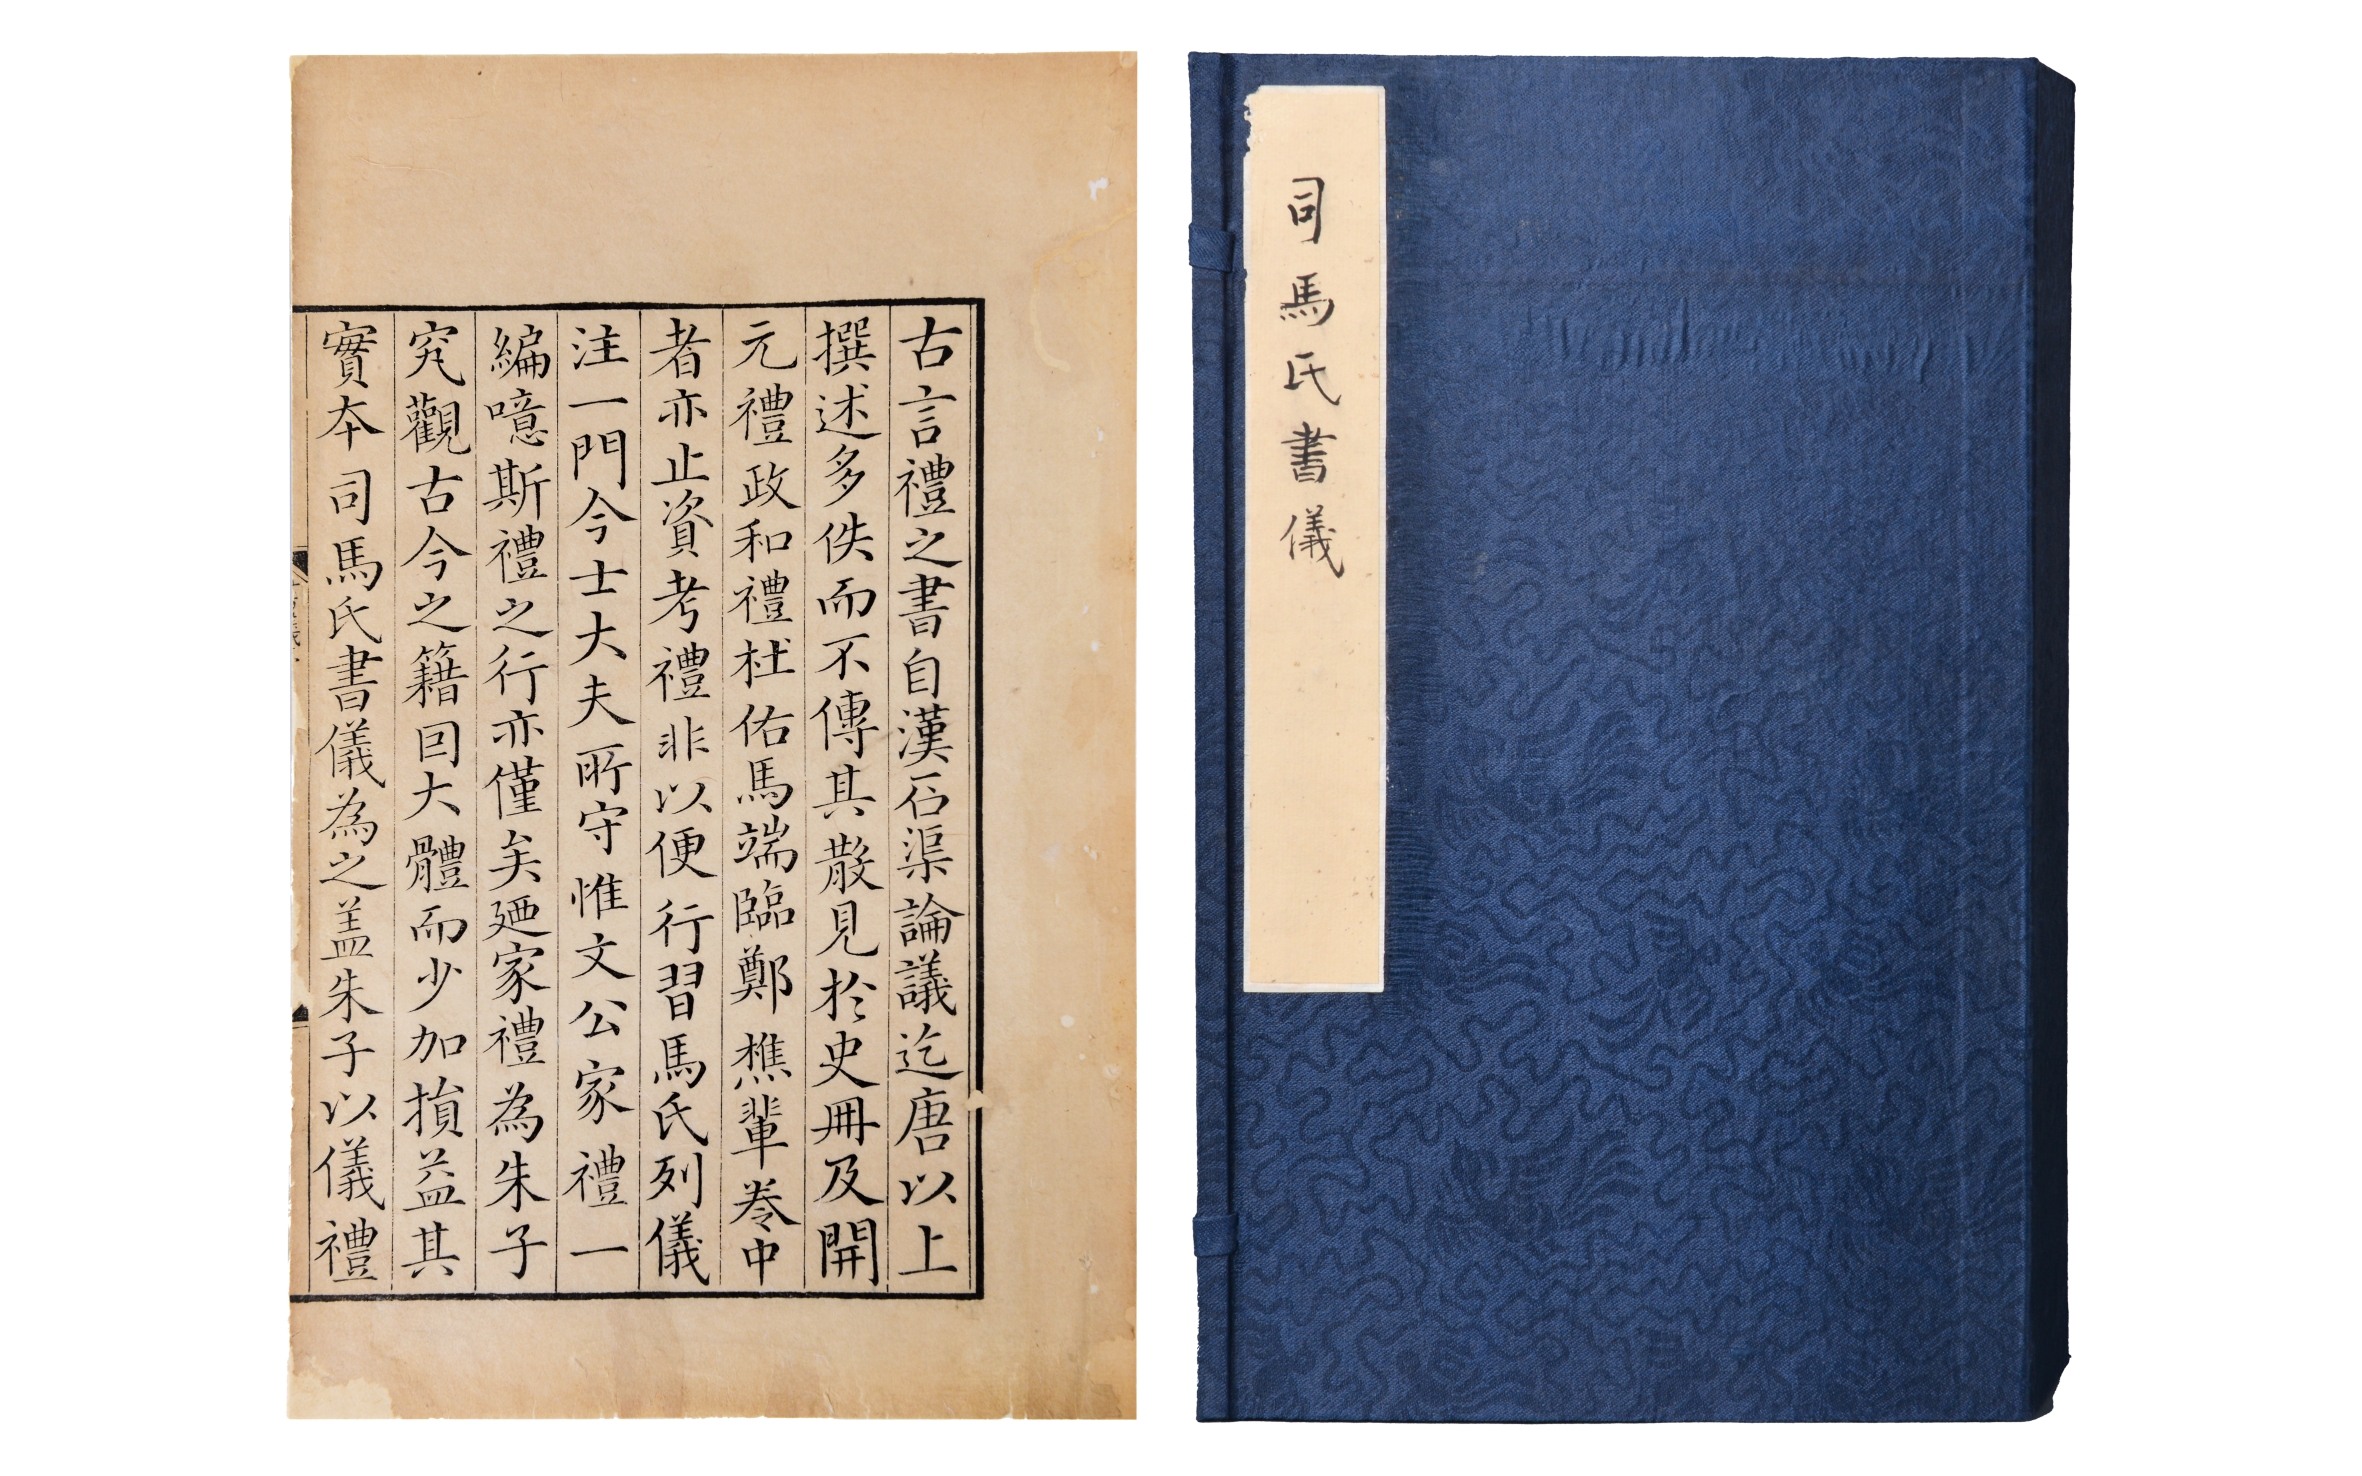 古言禮之書自漢石渠論議迄唐以上
撰述多佚而不傳其散見於史冊及開
元禮政和禮杜佑馬端臨鄭樵輩卷中
者亦止資考禮非以便行習馬氏列儀
注一門今士大夫所守惟文公家禮一
編噫斯禮之行亦僅矣廼家禮為朱子
究觀古今之籍因大體而少加損益其
實本司馬氏書儀為之盖朱子以儀禮
司馬氏書儀